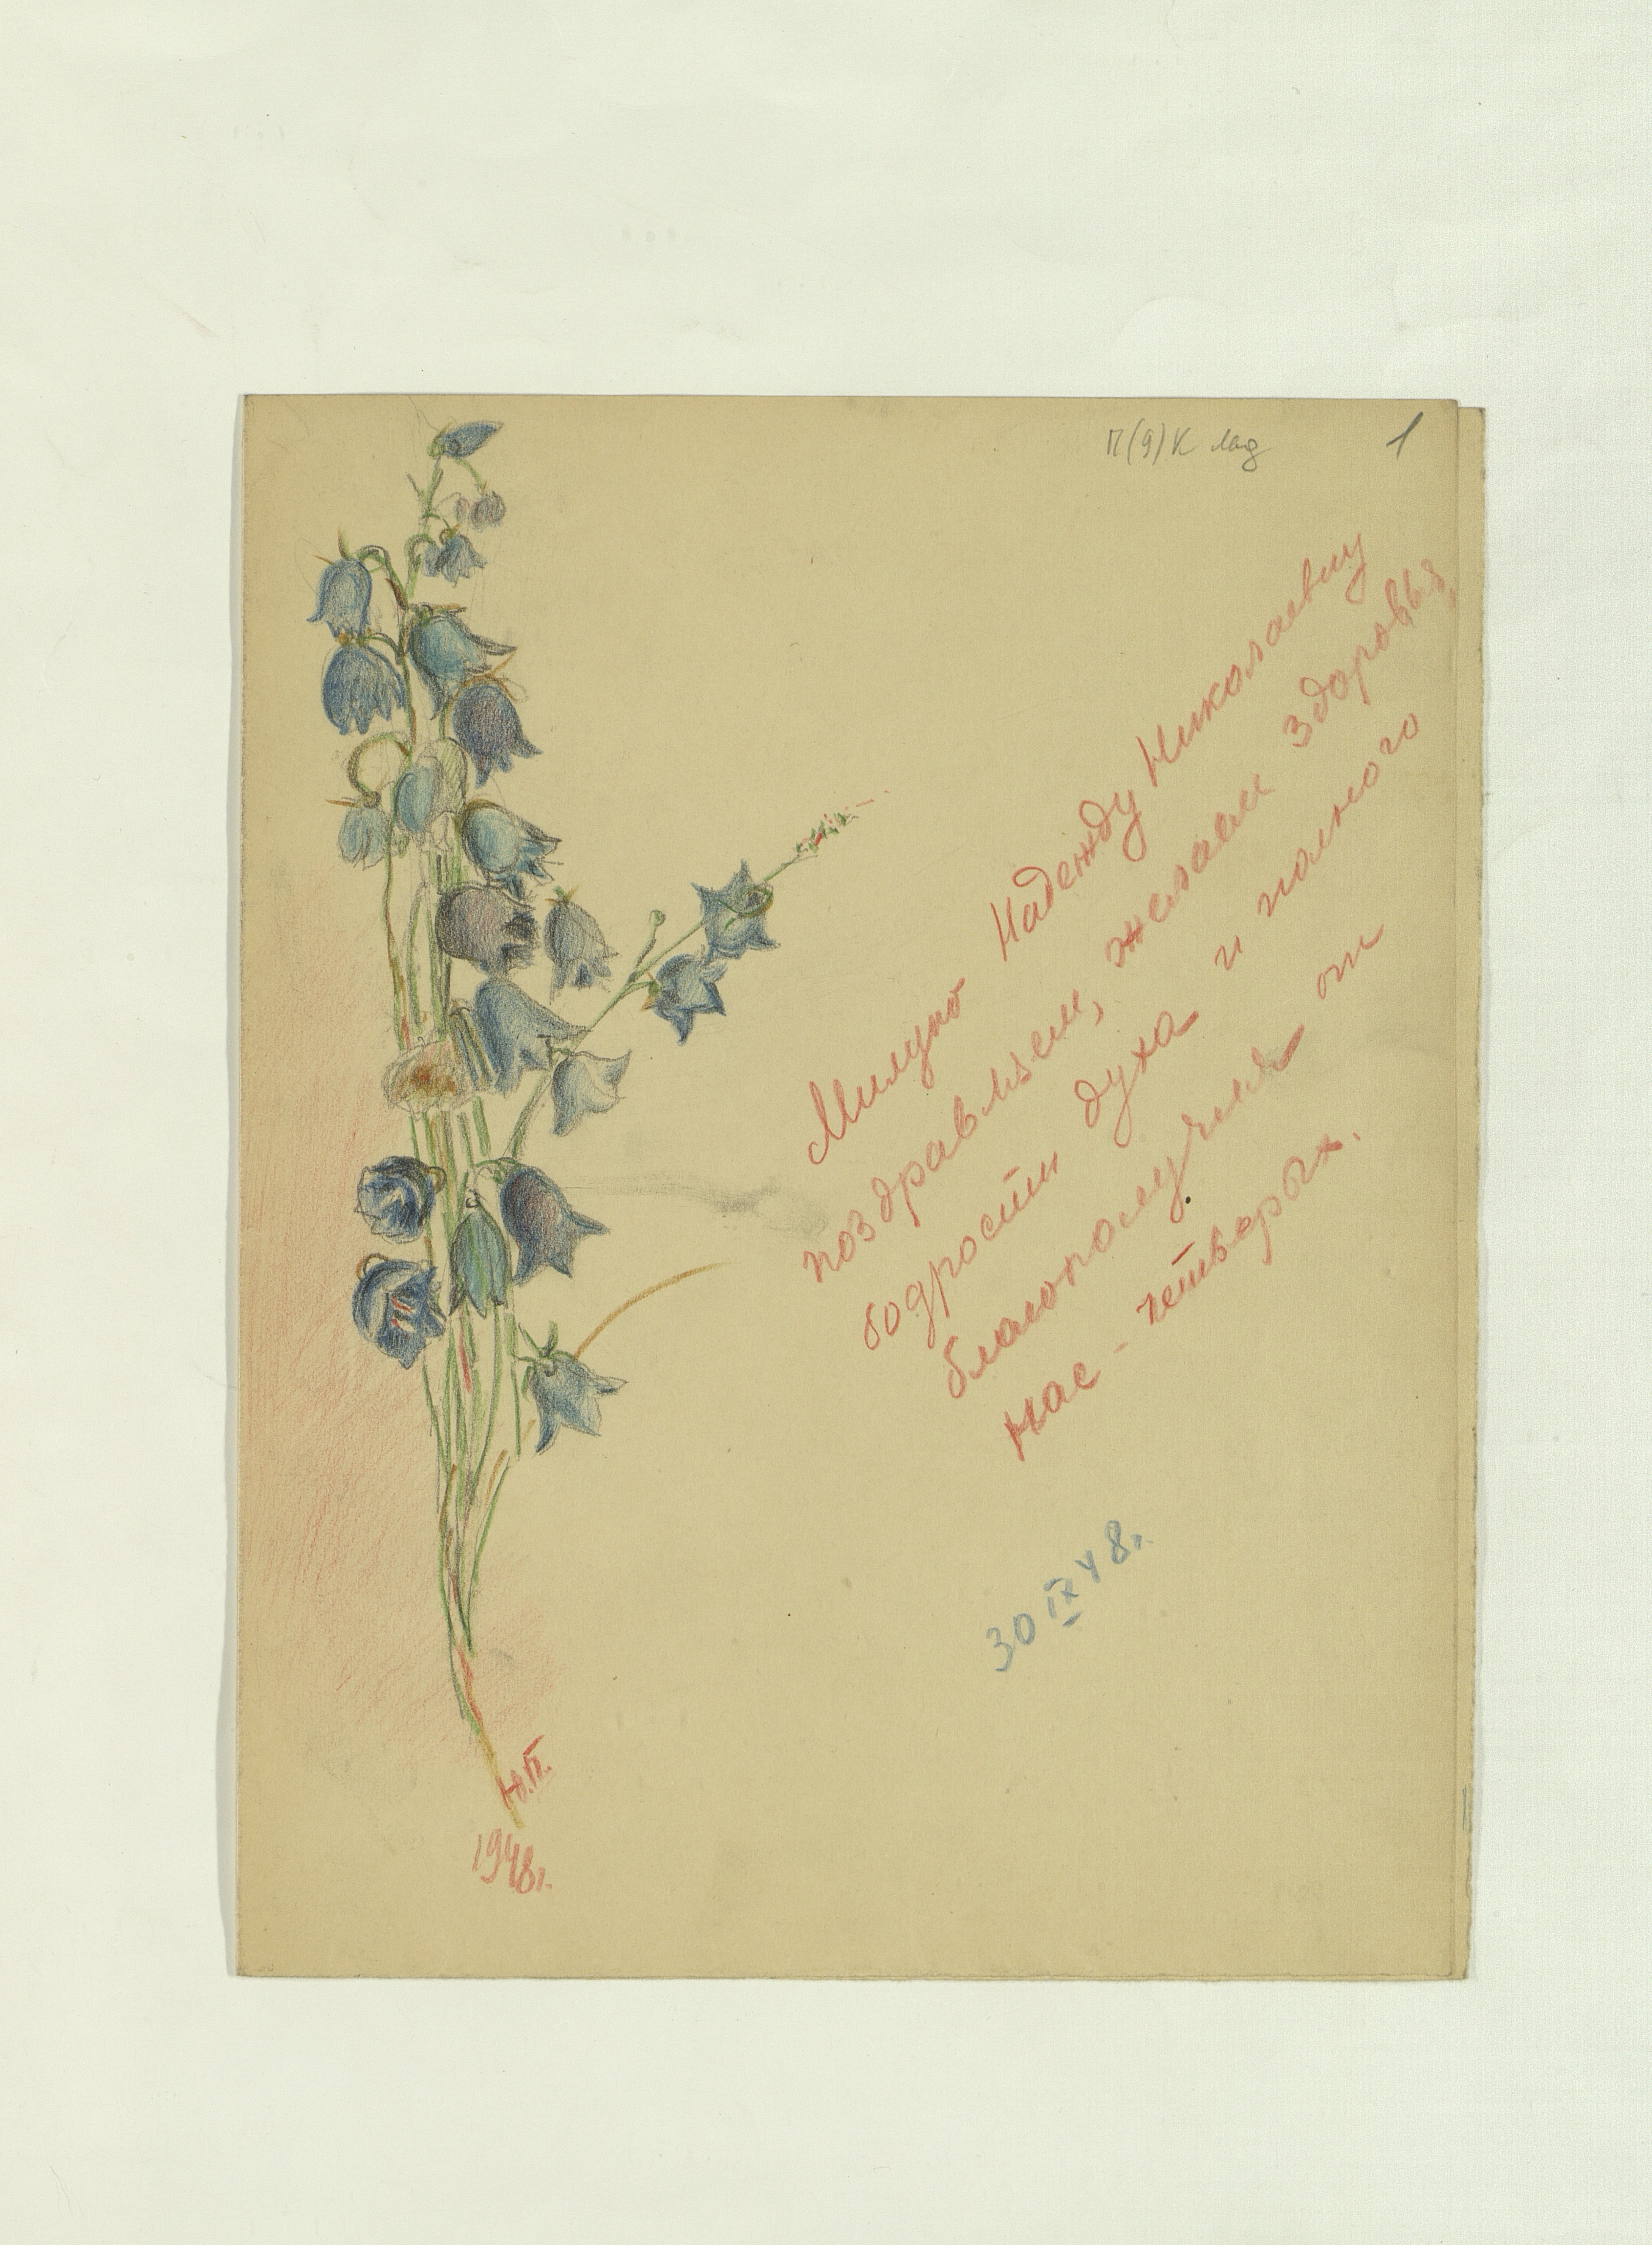 П(9)К Лад
1
Милую Надежду Николаевну
поздравляем, желаем здоровья,
бодрости духа и полного
благополучия от
нас - четверых.
30 IX 48.
Ю.П.
1948г.